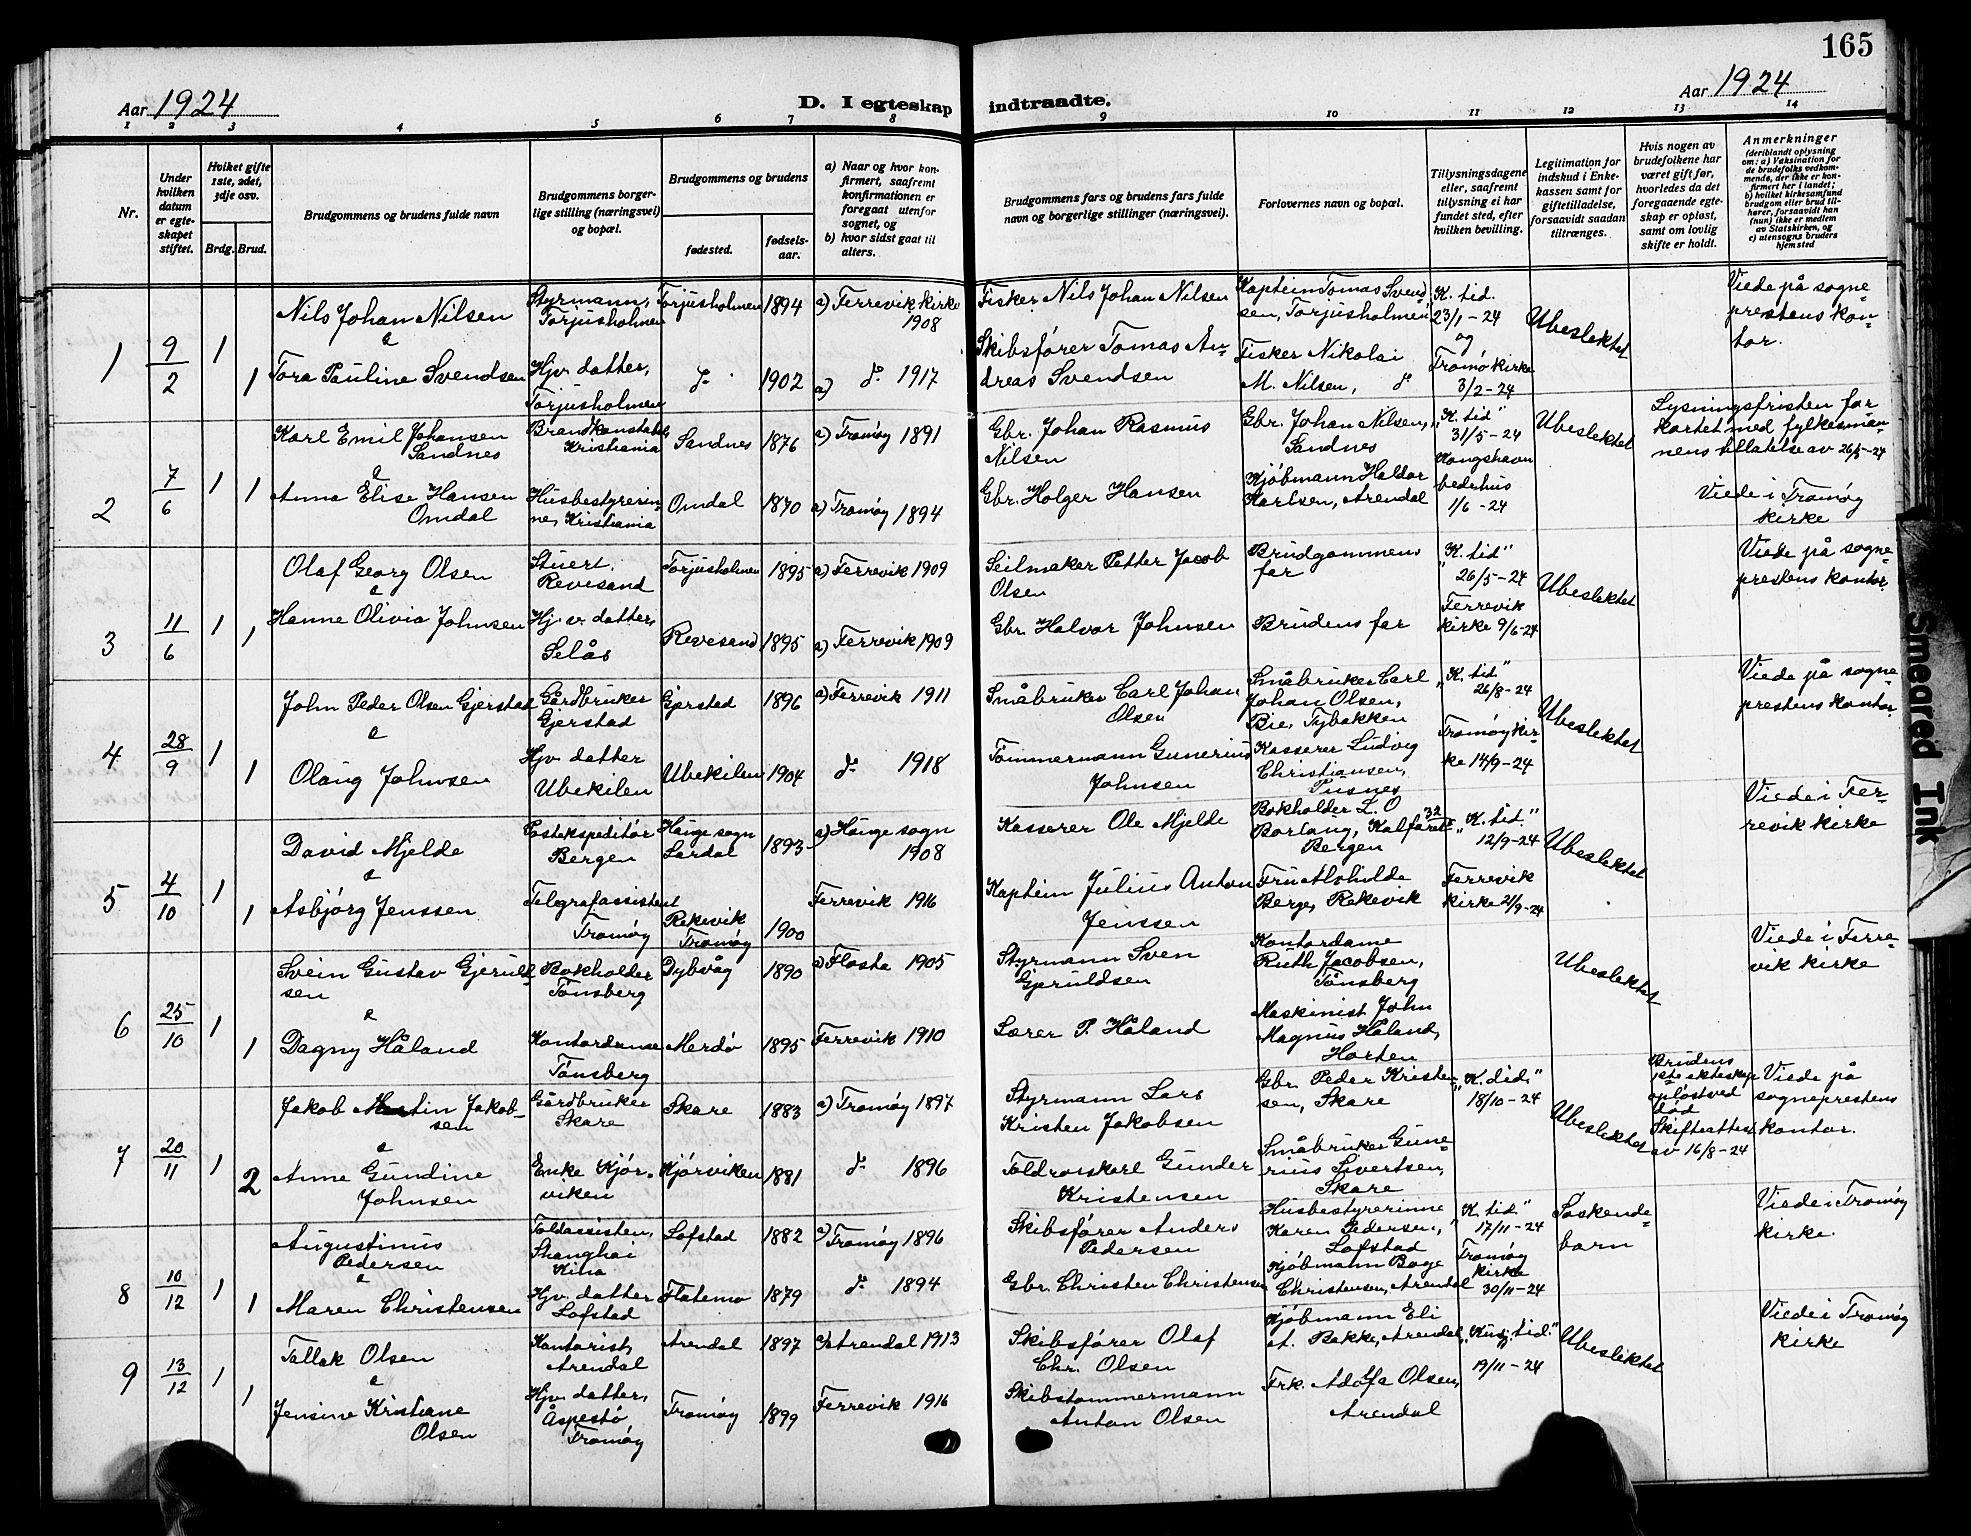 165
Aar 1924
D. I egteskap indtraadte.
Aar 1924
1 2 3 4 5 6 7 8 9 10 11 12 13 14
Nr.
Under hvilken datum er egteskapet stiftet.
Hvilket gifte 1ste, 2det, 3dje osv.
Brdg. Brud.
Brudgommens og brudens fulde navn
Brudgommens borgerlige stilling (næringsvei) og bopæl.
Brudgommens og brudens
fødested. fødselsaar.
a) Naar og hvor konfirmert, saafremt konfirmationen er foregaat utenfor sognet, og b) hvor sidst gaat til alters.
Brudgommens fars og brudens fars fulde navn og borgerlige stillinger (næringsvei).
Forlovernes navn og bopæl.
Tillysningsdagene eller, saafremt tillysning ei har fundet sted, efter hvilken bevilling.
Legitimation for indskud i Enkekassen samt for giftetilladelse, forsaavidt saadan tiltrænges.
Hvis nogen av brudefolkene har været gift før, hvorledes da det foregaaende egteskap er opløst, samt om lovlig skifte er holdt.
Anmerkninger (deriblandt oplysning om: a) Vaksination for de brudefolks vedkommende, der ikke er konfirmert her i landet; b) hvilket kirkesamfund brudgom eller brud tilhører, forsaavidt han (hun) ikke er medlem av Statskirken, og c) utensogns bruders hjemsted
1 9/2 1 Nils Johan Nilsen & Styrmann, Torjusholmen Torjusholmen 1894 a) Færevik kirke 1908 Fisker Nils Johan Nilsen Kaptein Tomas Svendsen, Torjusholmen "K. tid." 23/1-24 og Ubeslektet Viede på sogneprestens kontor.
1 Tora Pauline Svendsen Hjv. datter, Torjusholmen do 1902 a) do 1917 Skibsfører Tomas Andreas Svendsen Fisker Nikolai M. Nilsen, do Tromø kirke 3/2-24
2 7/6 1 Karl Emil Johansen Sandnes & Brandkonstabel, Kristiania Sandnes 1876 a) Tromøy 1891 Gbr. Johan Rasmus Nilsen Gbr. Johan Nilsen, Sandnes "K. tid" 31/5-24 Ubeslektet Lysningsfristen forkortet med fylkesmannens tillatelse av 26/5-24
1 Anna Elise Hansen Omdal Husbestyrerinne, Kristiania Omdal 1870 a) Tromøy 1894 Gbr. Holger Hansen Kjøbmann Haldor Karlsen, Arendal Kongshavn bedehus 1/6-24 Viede i Tromøy kirke
3 11/6 1 Olaf Georg Olsen & Stuert, Revesand Torjusholmen 1895 a) Færevik 1909 Seilmaker Petter Jacob Olsen Brudgommens far "K. tid" 26/5-24 Ubeslektet Viede på sogneprestens kontor.
1 Hanne Olivia Johnsen Hj. v. datter, Selås Revesand 1895 a) Færevik 1909 Gbr. Halvor Johnsen Brudens far Færevik kirke 9/6-24
4 28/9 1 John Peder Olsen Gjerstad & Gårdbruker Gjerstad Gjerstad 1896 a) Færevik 1911 Småbruker Carl Johan Olsen Småbruker Carl Johan Olsen, Bie, Tybakken "K. tid" 26/8-24 Ubeslektet Viede på sogneprestens kontor.
1 Olaug Johnsen Hjv. datter Ubekilen Ubekilen 1904 do 1918 Tømmermann Gunerius Johnsen Kasserer Ludvig Christiansen, Pusnes Tromøy kirke 14/9-24
5 4/10 1 David Mjelde & Postekspeditør Bergen Hauge sogn Lærdal 1893 a) Hauge sogn 1908 Kasserer Ole Mjelde Bokholder L. O Borlaug, Kalfaret 32 Bergen "K. tid." 12/9-24 Ubeslektet Viede i Færevik kirke
1 Asbjørg Jenssen Telegrafassistent Tromøy Rekevik Tromøy 1900 Færevik 1916 Kaptein Julius Anton Jenssen Fru Alvhilde Berge, Rekevik Færevik kirke 21/9-24
6 25/10 1 Svein Gustav Gjeruldsen & Bokholder Tønsberg Dybvåg 1890 a) Flosta 1905 Styrmann Sven Gjeruldsen Kontordame Ruth Jacobsen, Tønsberg Ubeslektet Viede i Færevik kirke
1 Dagny Håland Kontordame Tønsberg Merdø 1895 Færevik 1910 Lærer P. Håland Maskinist John Magnus Håland, Horten
7 20/11 1 Jakob Martin Jakobsen & Gårdbruker Skare Skare 1883 a) Tromøy 1897 Styrmann Lars Kristen Jakobsen Gbr. Peder Kristensen, Skare "K. tid." 18/10-24 Ubeslektet Brudens 1ste ekteskap opløst ved død Skifteattest av 16/8-24 Viede på sogneprestens kontor.
2 Anne Gundine Johnsen Enke Kjørviken Kjørviken 1881 do 1896 Toldroskarl Gunder Kristensen Småbruker Gunerius Sivertsen, Skare
8 10/12 1 Augustinus Pedersen & Toldassistent, Shanghai Kina Lofstad 1882 a) Tromøy 1896 Skibsfører Anders Pedersen Husbestyrerinne Karen Pedersen, Lofstad "K. tid" 17/11-24 Søskendebarn Viede i Tromøy kirke.
1 Maren Christensen Hjv. datter Lofstad Flatemo 1879 do 1894 Gbr. Christen Christensen Kjøbmann Boye Christensen, Arendal Tromøy kirke 30/11-24
9 13/12 1 Tallak Olsen & Kontorist, Arendal Arendal 1897 a) Arendal 1913 Skibsfører Olaf Chr. Olsen Kjøbmann Eli A. Bakke, Arendal "Kun. tid." 19/11-24 Ubeslektet Viede i Tromøy kirke
1 Jensine Kristiane Olsen Hjv. datter, Åspestø Tromøy Tromøy 1899 Færevik 1916 Skibstømmermann Anton Olsen Frk. Adofa Olsen, Arendal
Smeared Ink